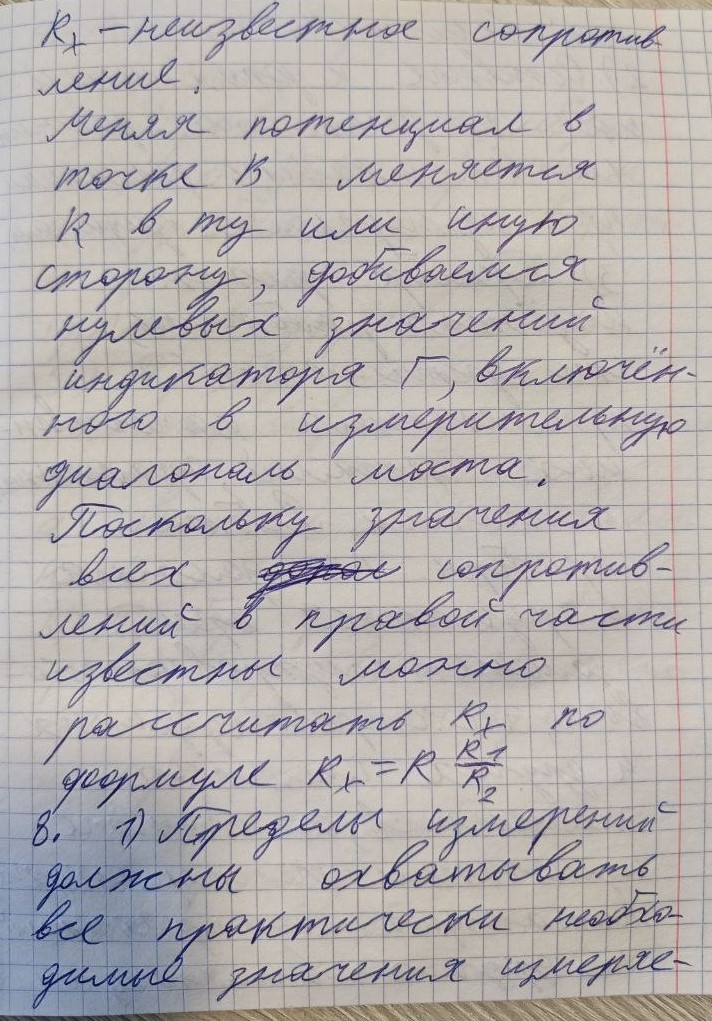 Rx – неизвестное сопротив-
ление.
Меняя потенциал в
точке В меняется
R в ту или иную
сторону, добиваемся
нулевых значений
индикатора Г, включён-
ного в измерительную
диагональ моста.
Поскольку значения
всех сопротив-
лений в правой части
известны можно
рассчитать Rx по
формуле Rx = R R1/R2
8. 1) Пределы измерений
должны охватывать
все практически необхо-
димые значения измеряе-